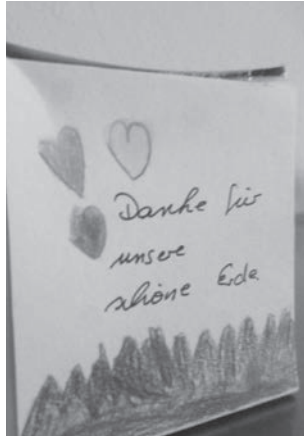 Danke für
unsere
schöne Erde